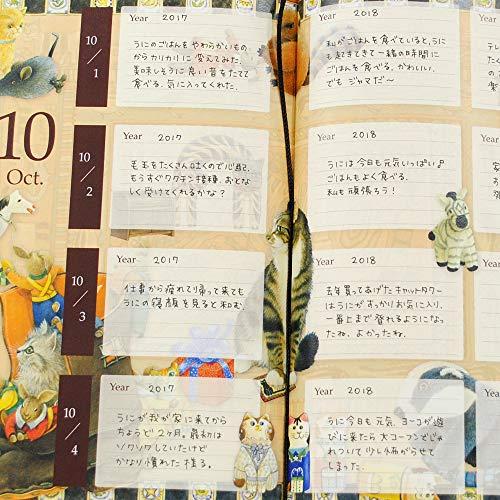 10
Oct.
10/1
Year 2017
うにのごはんをやわらかいもの
からカリカリに変えてみた。
美味しそうに良い音をたてて
食べる。気に入ってくれた。
Year 2018
私がごはんを食べていると、うに
も起きてきて一緒の時間に
ごはんを食べる。かわいい。
でもジャマだ〜
10/2
Year 2017
毛玉をたくさん吐くので心配。
もうすぐワクチン接種。おとな
しく受けてくれるかな?
Year 2018
うには今日も元気いっぱい♪
ごはんもよく食べる。
私も頑張ろう!
10/3
Year 2017
仕事から疲れて帰って来ても
うにの寝顔を見ると和む。
Year 2018
去年買ってあげたキャットタワー
はうにがすっかりお気に入り。
一番上まで登れるようになっ
たね。よかったね。
10/4
Year 2017
うにが我が家に来てから
ちょうど2ヶ月。最初は
ソワソワしていたけど
かなり慣れた様子。
Year 2018
うに今日も元気。ヨーコが遊
びに来たら大コーフンでじゃ
れついて少し小傷がらせて
しまった。